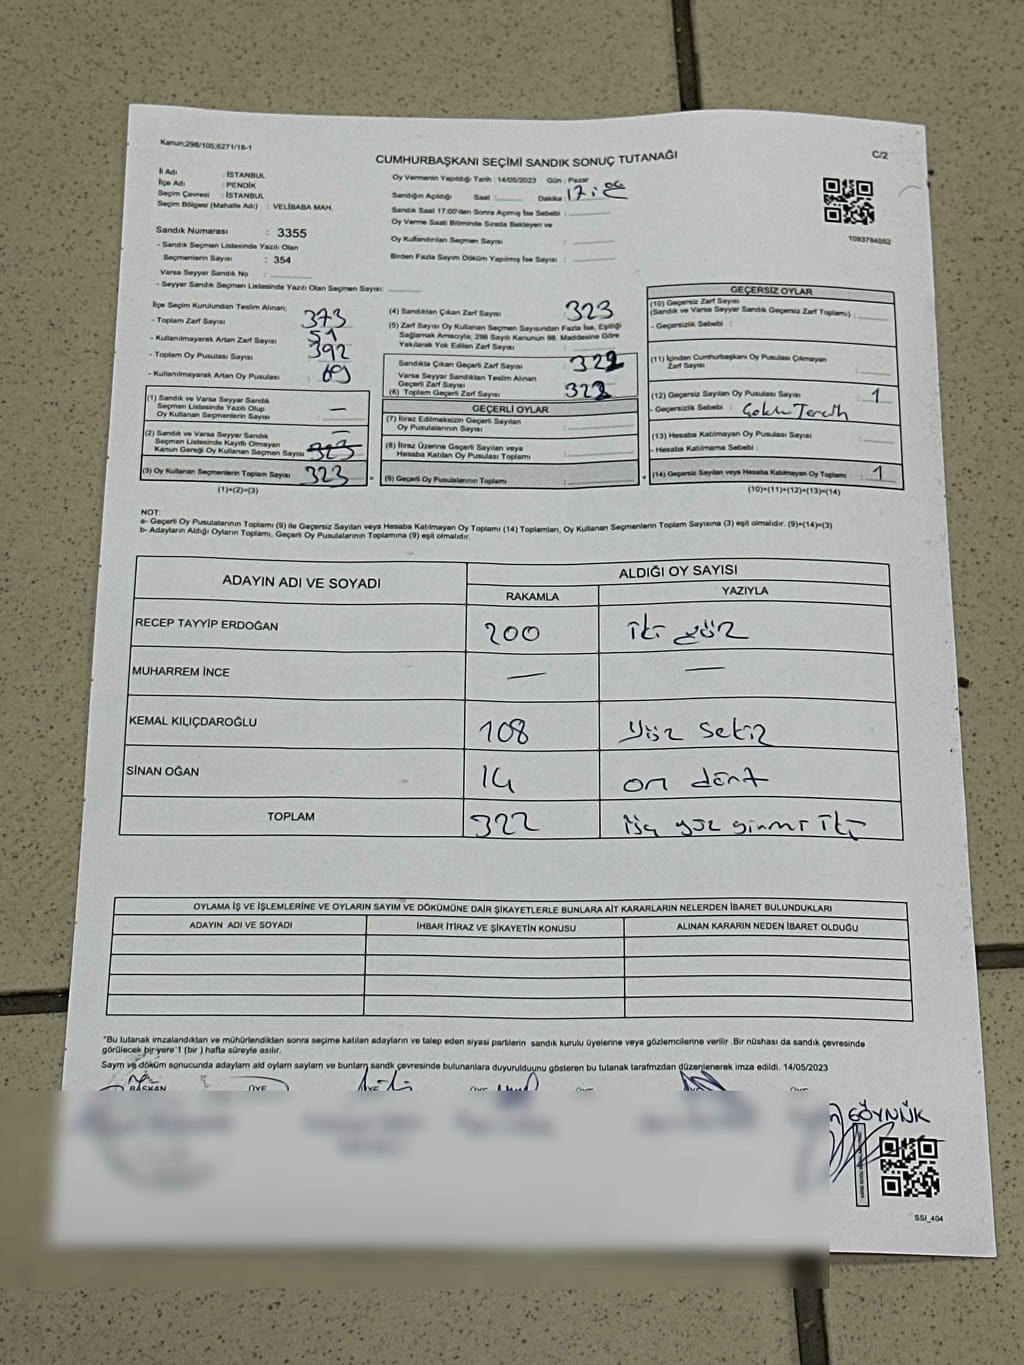 Kanun;298/105;6271/18-1
CUMHURBAŞKANI SEÇİMİ SANDIK SONUÇ TUTANAĞI
C/2
İl Adı : İSTANBUL
İlçe Adı : PENDİK
Seçim Çevresi : İSTANBUL
Seçim Bölgesi (Mahalle Adı) : VELİBABA MAH.
Sandık Numarası : 3355
- Sandık Seçmen Listesinde Yazılı Olan
Seçmenlerin Sayısı : 354
Varsa Seyyar Sandık No :
- Seyyar Sandık Seçmen Listesinde Yazılı Olan Seçmen Sayısı:
Oy Vermenin Yapıldığı Tarih : 14/05/2023 Gün : Pazar
Sandığın Açıldığı Saat : Dakika 17:
Sandık Saat 17:00'den Sonra Açımış İse Sebebi :
Oy Verme Saati Bitiminde Sırada Bekleyen ve
Oy Kullandırılan Seçmen Sayısı :
Birden Fazla Sayım Döküm Yapılmış İse Sayısı :
1093784552
İlçe Seçim Kurulundan Teslim Alınan;
- Toplam Zarf Sayısı 373
- Kullanılmayarak Artan Zarf Sayısı 51
- Toplam Oy Pusulası Sayısı 392
- Kullanılmayarak Artan Oy Pusulası 69
(1) Sandık ve Varsa Seyyar Sandık
Seçmen Listesinde Yazılı Olup
Oy Kullanan Seçmenlerin Sayısı : —
(2) Sandık ve Varsa Seyyar Sandık
Seçmen Listesinde Kayıtlı Olmayan
Kanun Gereği Oy Kullanan Seçmen Sayısı — 323
(3) Oy Kullanan Seçmenlerin Toplam Sayısı 323
(1)+(2)=(3)
(4) Sandıktan Çıkan Zarf Sayısı 323
(5) Zarf Sayısı Oy Kullanan Seçmen Sayısından Fazla İse, Eşitliği
Sağlamak Amacıyla, 298 Sayılı Kanunun 98. Maddesine Göre
Yakılarak Yok Edilen Zarf Sayısı :
Sandıkta Çıkan Geçerli Zarf Sayısı 322
Varsa Seyyar Sandıktan Teslim Alınan
Geçerli Zarf Sayısı
(6) Toplam Geçerli Zarf Sayısı 322
GEÇERLİ OYLAR
(7) İtiraz Edilmeksizin Geçerli Sayılan
Oy Pusulalarının Sayısı :
(8) İtiraz Üzerine Geçerli Sayılan veya
Hesaba Katılan Oy Pusulası Toplamı :
= (9) Geçerli Oy Pusulalarının Toplamı :
GEÇERSİZ OYLAR
(10) Geçersiz Zarf Sayısı
(Sandık ve Varsa Seyyar Sandık Geçersiz Zarf Toplamı) :
- Geçersizlik Sebebi :
(11) İçinden Cumhurbaşkanı Oy Pusulası Çıkmayan
Zarf Sayısı :
(12) Geçersiz Sayılan Oy Pusulası Sayısı : 1
- Geçersizlik Sebebi :
(13) Hesaba Katılmayan Oy Pusulası Sayısı :
- Hesaba Katılmama Sebebi :
+ (14) Geçersiz Sayılan veya Hesaba Katılmayan Oy Toplamı : 1
(10)+(11)+(12)+(13)=(14)
NOT:
a- Geçerli Oy Pusulalarının Toplamı (9) ile Geçersiz Sayılan veya Hesaba Katılmayan Oy Toplamı (14) Toplamları, Oy Kullanan Seçmenlerin Toplam Sayısına (3) eşit olmalıdır. (9)+(14)=(3)
b- Adayların Aldığı Oyların Toplamı, Geçerli Oy Pusulalarının Toplamına (9) eşit olmalıdır.
ADAYIN ADI VE SOYADI
ALDIĞI OY SAYISI
RAKAMLA YAZIYLA
RECEP TAYYİP ERDOĞAN 200 iki yüz
MUHARREM İNCE — —
KEMAL KILIÇDAROĞLU 108 yüz sekiz
SİNAN OĞAN 14 on dört
TOPLAM 322 üç yüz yirmi iki
OYLAMA İŞ VE İŞLEMLERİNE VE OYLARIN SAYIM VE DÖKÜMÜNE DAİR ŞİKAYETLERLE BUNLARA AİT KARARLARIN NELERDEN İBARET BULUNDUKLARI
ADAYIN ADI VE SOYADI İHBAR İTİRAZ VE ŞİKAYETİN KONUSU ALINAN KARARIN NEDEN İBARET OLDUĞU
*Bu tutanak imzalandıktan ve mühürlendikten sonra seçime katılan adayların ve talep eden siyasi partilerin sandık kurulu üyelerine veya gözlemcilerine verilir .Bir nüshası da sandık çevresinde
görülecek bir yere 1 (bir ) hafta süreyle asılır.
Sayım ve döküm sonucunda adayların ald oyların sayların ve bunların sandk çevresinde bulunanlara duyurulduunu gösteren bu tutanak tarafmzdan düzenlenerek imza edildi. 14/05/2023
BAŞKAN ÜYE ÜYE
GÖYNÜK
SSI_404